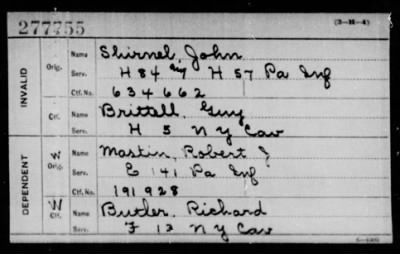 277755 (3-H-4)
INVALID Orig. Name Shirnel, John
Serv. H 84 & H 57 Pa Inf
Ctf. No. 634662
Ctf. Name Brittall, Guy
Serv. H 5 N Y Cav
DEPENDENT W Orig. Name Mastin, Robert J
Serv. E 141 Pa Inf
Ctf. No. 191928
W Ctf. Name Butler, Richard
Serv. F 13 N Y Cav